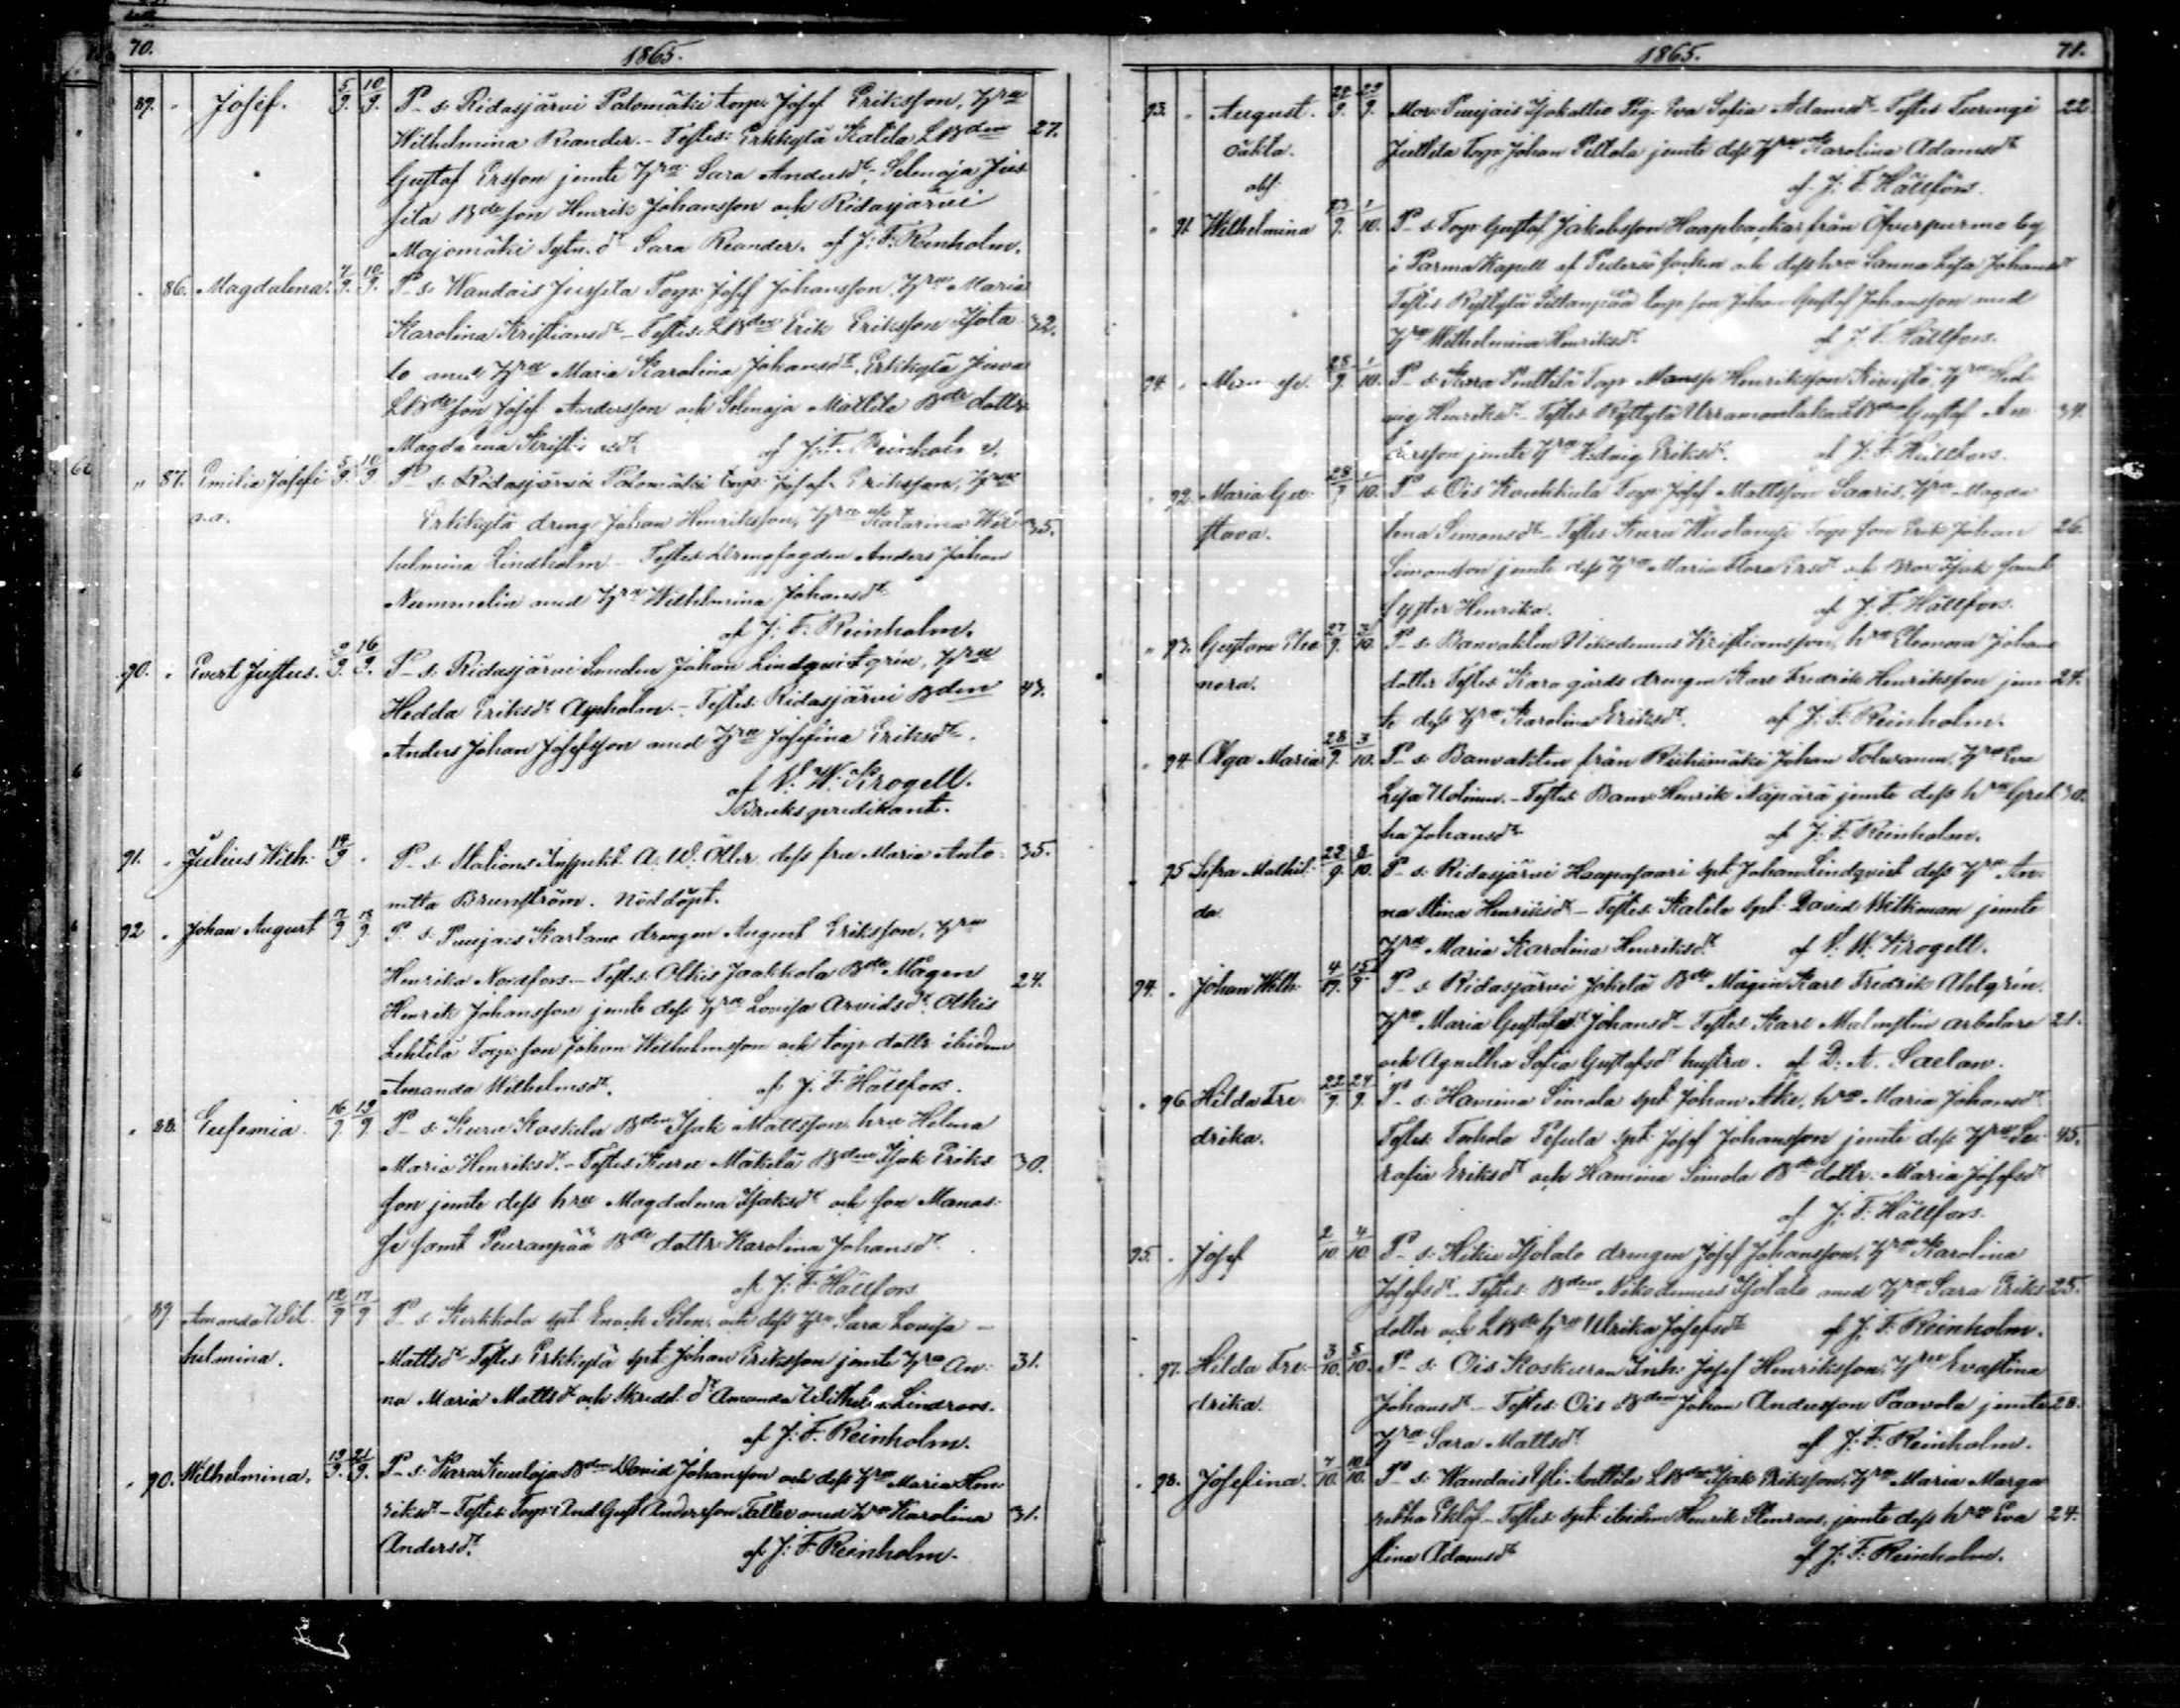 70.
1865.
89. " Josef. 5/9. 10/9. P. s. Ridasjärvi Palomäki torp. Josef Eriksson, Hru
Wilhelmina Reander. - Testes: Erkkylä Katila LBden 27.
Gustaf Ersson jemte Hru Sara Andersdr, Selmaja Jus
sila Bde son Henrik Johansson och Ridasjärvi
Majomäki dr Sara Reander. af J. F. Reinholm.
" 86. Magdalena. 7/9. 10/9. P. s. Wandais Jussila Torp. Josef Johansson, Hru Maria
Karolina Kristiansdr - Testes: LBden Erik Eriksson Isota 32.
lo med Hru Maria Karolina Johansdr, Erkkylä Juva
LBde son Josef Andersson och Selmaja Mattila Bde dottr
Magdalena af J. F. Reinholm.
" 87. Emilia Josefi 5/9. 10/9. P. s. Ridasjärvi Palomäki torp. Josef Eriksson, Hru
na. Erkkylä dreng Johan Henriksson, Hru Katarina Wil 35.
helmina Lindholm - Testes: Drengfogden Anders Johan
Nummelin med Hru Wilhelmina Johansdr
af J. F. Reinholm.
90. " Evert Justus. 9/9. 16/9. P. s. Ridasjärvi Smeden Johan Lindqvist, Hru
Hedda Eriksdr Aspholm. - Testes: Ridasjärvi Bden 43.
Anders Johan Josefsson med Hru Josefina Eriksdr.
af V. W. Krogell.
Bruks predikant.
91. " Julius Wilh: 14/9 " P. s. Stations Inspekt. A. W. Öller dess fru Maria Anto- 35.
netta Brunström. Nöddöpt.
92 " Johan August 17/9 18/9. P. s. Puujais Kartano drengen August Eriksson, Hru
Henrika Nordfors. - Testes: Olkis Jaakkola Bde Mågen 24.
Henrik Johansson jemte dess Hru Lovisa Arvidsdr, Olkis
Lehtilä Torp. son Johan Wilhelmsson och torp. dottr ibidem
Amanda Wilhelmsdr. af J. F. Hällfors.
" 88. Eufemia. 16/9 19/9 P. s. Kuru Koskela Bden Isak Mattsson, hru Helena
Maria Henriksdr. - Testes: Kuru Mäkelä Bden Isak Eriks 30.
son jemte dess hru Magdalena Isaksdr och son Manas-
se samt Peuranpää Bde dottr Karolina Johansdr.
af J. F. Hällfors
" 89 Amanda Wil 12/9 17/9 P. s. Kerkkola spt. Enock Silen och dess Hru Sara Lovisa -
helmina. Mattsdr Testes: Erkkylä spt. Johan Eriksson jemte Hru An- 31.
na Maria Mattsdr och Skredd. dr Amanda Wilhelm. Lindroos.
af J. F. Reinholm.
" 90. Wilhelmina. 19/9. 21/9. P. s. Kara Bden David Johansson och dess Hru Maria Hen-
riksdr - Testes: Torp. And. Gust. Andersson Faller med Hru Karolina 31.
Andersdr. af J. F. Reinholm.
1865.
71.
93. " August. 22/9. 22/9. Mor. Puujais Isokallio Pig. Eva Sofia Adamsdr - Testes Turengi 22
Oäkta. Juttila Torp. Johan Peltola jemte dess Hru Karolina Adamsdr
af J. F. Hällfors.
" 91. Wilhelmina 23/9. 1/10. P. s. Torp. Gustaf Jakobsson Haapbackar från Öfverpurmo by
i Purma Kapell af Pedersö socken och dess hru Sanna Lisa Johansdr
Testes Ryttylä torp. son Johan Gustaf Johansson med
Hru Wilhelmina Henriksdr. af J. F. Hällfors.
94. " 28/9. 1/10. P. s. Kara Penttilä Torp. Manasse Henriksson Kivistö, Hru Hed-
vig Henriksdr - Testes Ryttylä LBden Gustaf An- 34.
dersson jemte Hru Hedvig Eriksdr. af J. F. Hällfors.
" 92. Maria Gu- 28/9 1/10. P. s. Ois Koukkula Torp. Josef Mattsson Saaris, Hru Magda
stava. lena Simonsdr - Testes Kuru Torp. son Erik Johan 26.
Simonsson jemte dess Hru Maria Flora Ersdr och Bror Isak samt
syster Henrika. af J. F. Hällfors.
" 93. Gustava Eleo 27/9. 2/10. P. s. Banvakten Nikodemus Kristiansson, hru Eleonora Johans
nora. dotter Testes Kara gårds drengen Karl Fredrik Henriksson jem- 24.
te dess Hru Karolina Eriksdr. af J. F. Reinholm.
" 94. Olga Maria 28/9. 3/10. P. s. Banvakten från Riihimäki Johan Tolvanen, Hru Eva
Lisa Utolinen. - Testes Banv. Henrik Näpärä jemte dess hru Gret 30.
ha Johansdr af J. F. Reinholm.
" 95 Sefra Mathil- 22/9. 8/10. P. s. Ridasjärvi Haapasaari spt. Johan Lindqvist dess Hru An-
da. na Stina Henriksdr - Testes: Katila spt. David Wilkman jemte
Hru Maria Karolina Henriksdr. af V. W. Krogell.
94. " Johan Wilh. P. s. Ridasjärvi Jokela Bde Mågen Karl Fredrik Ahlgrén.
Hru Maria Gustafva Johansdr - Testes Karl Malmsten arbetare 21.
och Agnetha Sofia Gustafsdr hustru. af D. A. Saelan.
" 96 Hilda Fre- 22/9. 24/9. P. s. Hamina Simola spt. Johan Ake, hru Maria Johansdr.
drika. Testes: Torhola Pesula spt. Josef Johansson jemte dess Hru Se- 45.
rafia Eriksdr och Hamina Simola Bde dottr. Maria Josefsdr
af J. F. Hällfors.
95. " Josef 2/10. 4/10. P. s. Hikie Isotalo drengen Josef Johansson, Hru Karolina
Josefsdr - Testes: Bden Nikodemus Isotalo med Hru Sara Eriks 25.
dotter och LBde hru Ulrika Josefsdr af J. F. Reinholm.
" 97. Hilda Fre- 3/10. 8/10. P. s. Ois Koskuren Inh. Josef Henriksson, Hru Evastina
drika. Johansdr. - Testes: Ois Bden Johan Andersson Paavola jemte 28.
Hru Sara Mattsdr af J. F. Reinholm.
" 98. Josefina. 7/10. 10/10. P. s. Wandais Yli-Anttila LBden Isak Eriksson, Hru Maria Marga
retha Eklöf - Testes: spt. ibidem Henrik Stenroos, jemte dess hru Eva 24.
stina Adamsdr af J. F. Reinholm.